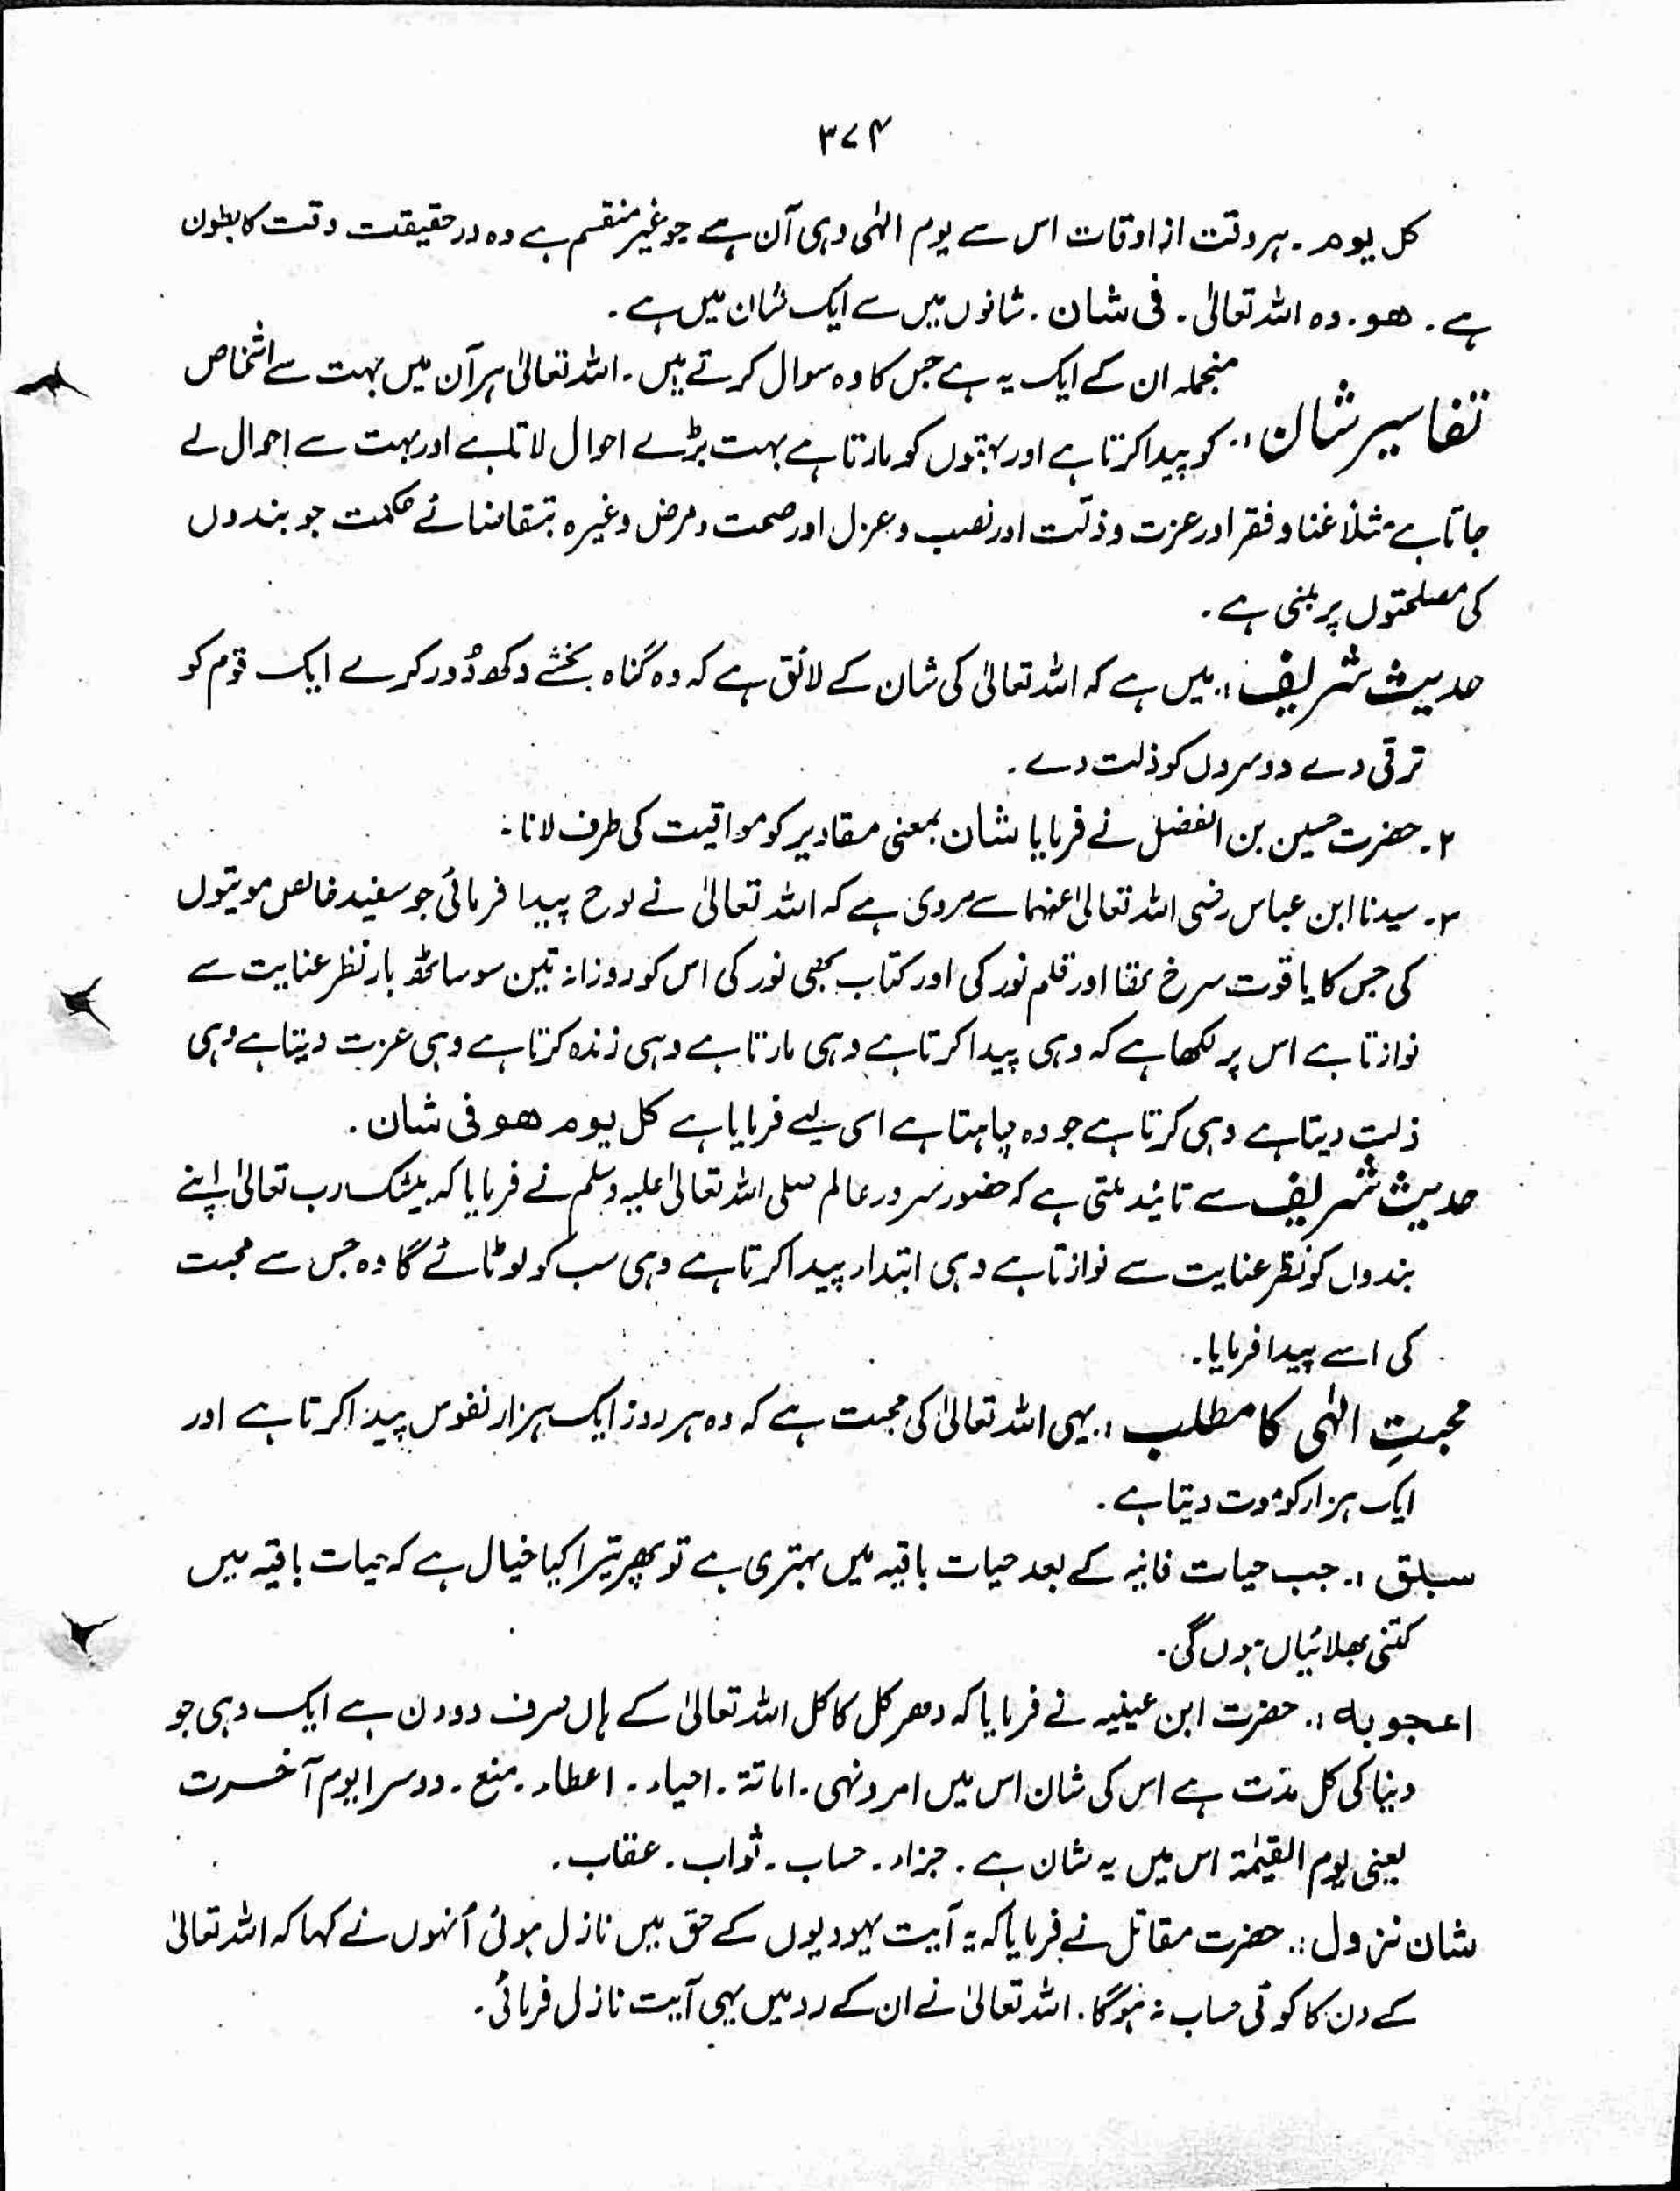 ۳۷۴
کل یوم ۔ ہر وقت از اوقات اس سے یوم الٰہی وہی آن ہے جو غیر منقسم ہے وہ در حقیقت وقت کا بطون
ہے ۔ ھو ۔ وہ اللہ تعالیٰ ۔ فی شان ۔ شانوں میں سے ایک شان میں ہے ۔
تفاسیر شان :۔ منجملہ ان کے ایک یہ ہے جس کا وہ سوال کرتے ہیں ۔ اللہ تعالیٰ ہر آن میں بہت سے اشخاص
کو پیدا کرتا ہے اور بہتوں کو مارتا ہے بہت بڑے احوال لاتا ہے اور بہت سے احوال لے
جاتا ہے مثلاً غنا و فقر اور عزت و ذلّت اور نصب و عزل اور صحت و مرض وغیرہ بتقاضائے حکمت جو بندوں
کی مصلحتوں پر مبنی ہے ۔
حدیث شریف :۔ میں ہے کہ اللہ تعالیٰ کی شان کے لائق ہے کہ وہ گناہ بخشے دکھ دُور کرے ایک قوم کو
ترقی دے دوسروں کو ذلت دے ۔
۲ ۔ حضرت حسین بن الفضل نے فرمایا شان بمعنی مقادیر کو مواقیت کی طرف لانا ۔
۳ ۔ سیدنا ابن عباس رضی اللہ تعالیٰ عنہما سے مروی ہے کہ اللہ تعالیٰ نے لوح پیدا فرمائی جو سفید خالص موتیوں
کی جس کا یاقوت سرخ تھا اور قلم نور کی اور کتاب بھی نور کی اس کو روزانہ تین سو ساٹھ بار نظر عنایت سے
نوازتا ہے اس پر لکھا ہے کہ وہی پیدا کرتا ہے وہی مارتا ہے وہی زندہ کرتا ہے وہی عزت دیتا ہے وہی
ذلت دیتا ہے وہی کرتا ہے جو وہ چاہتا ہے اسی لیے فرمایا ہے کل یوم ھو فی شان ۔
حدیث شریف سے تائید ملتی ہے کہ حضور سرور عالم صلی اللہ تعالیٰ علیہ وسلم نے فرمایا کہ بیشک رب تعالیٰ اپنے
بندوں کو نظر عنایت سے نوازتا ہے وہی ابتداء پیدا کرتا ہے وہی سب کو لوٹائے گا وہ جس سے محبت
کی اسے پیدا فرمایا ۔
محبتِ الٰہی کا مطلب :۔ یہی اللہ تعالیٰ کی محبت ہے کہ وہ ہر روز ایک ہزار نفوس پیدا کرتا ہے اور
ایک ہزار کو موت دیتا ہے ۔
سبق :۔ جب حیات فانیہ کے بعد حیات باقیہ میں بہتری ہے تو پھر تیرا کیا خیال ہے کہ حیات باقیہ میں
کتنی بھلائیاں ہوں گی ۔
اعجوبہ :۔ حضرت ابن عینیہ نے فرمایا کہ دھر کل کا کل اللہ تعالیٰ کے ہاں صرف دو دن ہے ایک وہی جو
دنیا کی کل مدّت ہے اس کی شان اس میں امر و نہی ۔ اماتۃ ۔ احیاء ۔ اعطاء ۔ منع ۔ دوسرا یوم آخرت
یعنی یوم القیٰمۃ اس میں یہ شان ہے ۔ جزاء ۔ حساب ۔ ثواب ۔ عقاب ۔
شان نزول :۔ حضرت مقاتل نے فرمایا کہ یہ آیت یہودیوں کے حق میں نازل ہوئی اُنہوں نے کہا کہ اللہ تعالیٰ
کے دن کا کوئی حساب نہ ہوگا ۔ اللہ تعالیٰ نے ان کے رد میں یہی آیت نازل فرمائی ۔